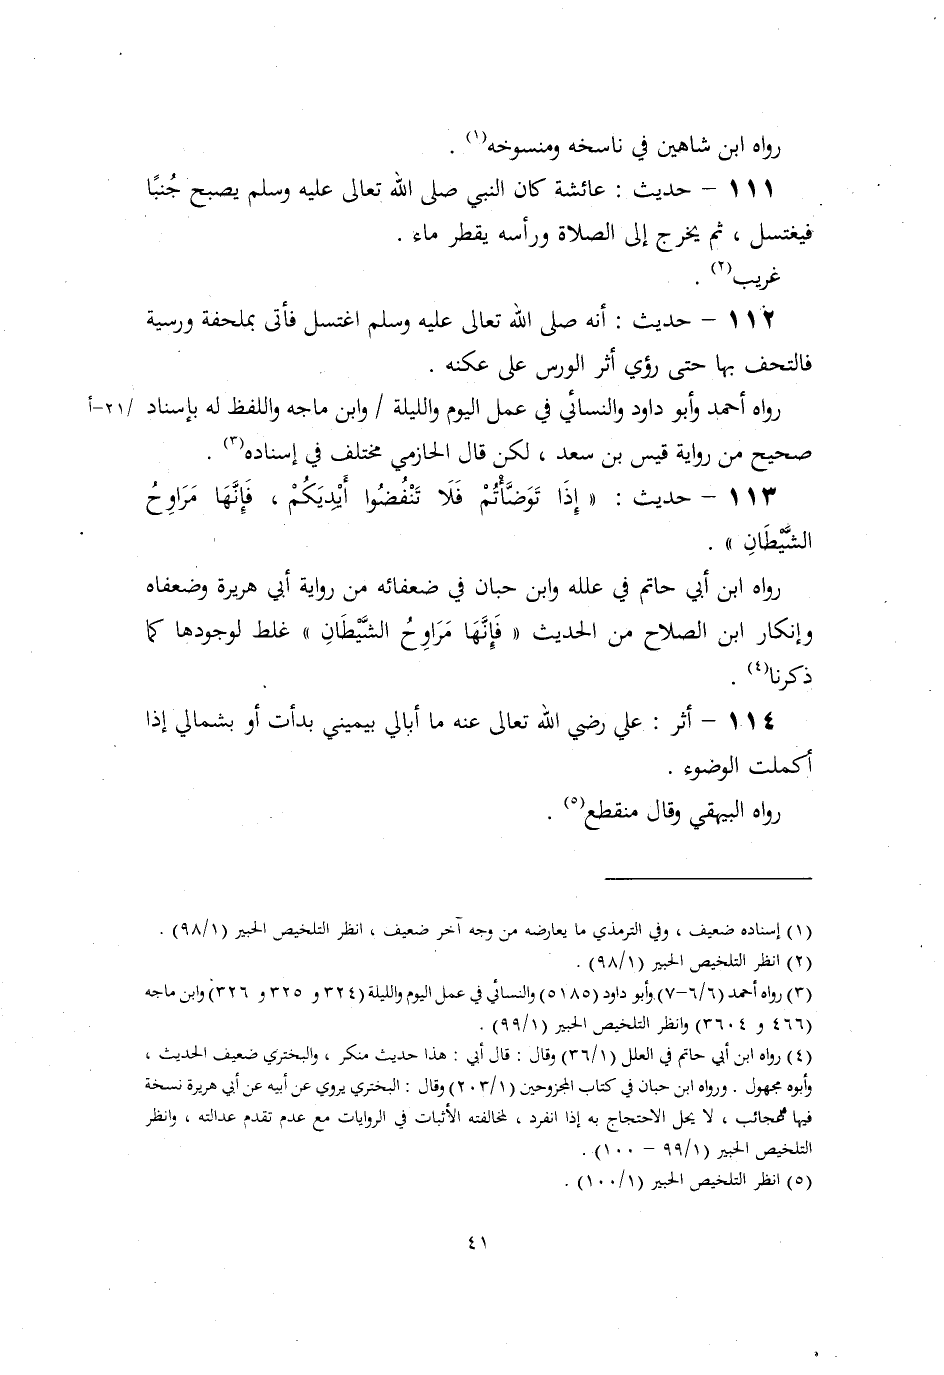 رواه ابن شاهين في ناسخه ومنسوخه(١) .
١١١ – حديث : عائشة كان النبي صلى الله تعالى عليه وسلم يصبح جُنبًا
فيغتسل ، ثم يخرج إلى الصلاة ورأسه يقطر ماء .
غريب(٢) .
١١٢ – حديث : أنه صلى الله تعالى عليه وسلم اغتسل فأتى بملحفة ورسية
فالتحف بها حتى رؤي أثر الورس على عكنه .
رواه أحمد وأبو داود والنسائي في عمل اليوم والليلة / وابن ماجه واللفظ له بإسناد /٢١-أ
صحيح من رواية قيس بن سعد ، لكن قال الحازمي مختلف في إسناده(٣) .
١١٣ – حديث : « إِذَا تَوَضَّأْتُمْ فَلَا تَنْفُضُوا أَيْدِيَكُمْ ، فَإِنَّهَا مَرَاوِحُ
الشَّيْطَانِ » .
رواه ابن أبي حاتم في علله وابن حبان في ضعفائه من رواية أبي هريرة وضعفاه
وإنكار ابن الصلاح من الحديث « فَإِنَّهَا مَرَاوِحُ الشَّيْطَانِ » غلط لوجودها كما
ذكرنا(٤) .
١١٤ – أثر : علي رضي الله تعالى عنه ما أبالي بيميني بدأت أو بشمالي إذا
أكملت الوضوء .
رواه البيهقي وقال منقطع(٥) .
(١) إسناده ضعيف ، وفي الترمذي ما يعارضه من وجه آخر ضعيف ، انظر التلخيص الحبير (٩٨/١) .
(٢) انظر التلخيص الحبير (٩٨/١) .
(٣) رواه أحمد (٦/٦-٧) وأبو داود (٥١٨٥) والنسائي في عمل اليوم والليلة (٣٢٤ و ٣٢٥ و ٣٢٦) وابن ماجه
(٤٦٦ و ٣٦٠٤) وانظر التلخيص الحبير (٩٩/١) .
(٤) رواه ابن أبي حاتم في العلل (٣٦/١) وقال : قال أبي : هذا حديث منكر ، والبختري ضعيف الحديث ،
وأبوه مجهول . ورواه ابن حبان في كتاب المجروحين (٢٠٣/١) وقال : البختري يروي عن أبيه عن أبي هريرة نسخة
فيها عجائب ، لا يحل الاحتجاج به إذا انفرد ، لمخالفته الأثبات في الروايات مع عدم تقدم عدالته ، وانظر
التلخيص الحبير (٩٩/١ – ١٠٠) .
(٥) انظر التلخيص الحبير (١٠٠/١) .
٤١